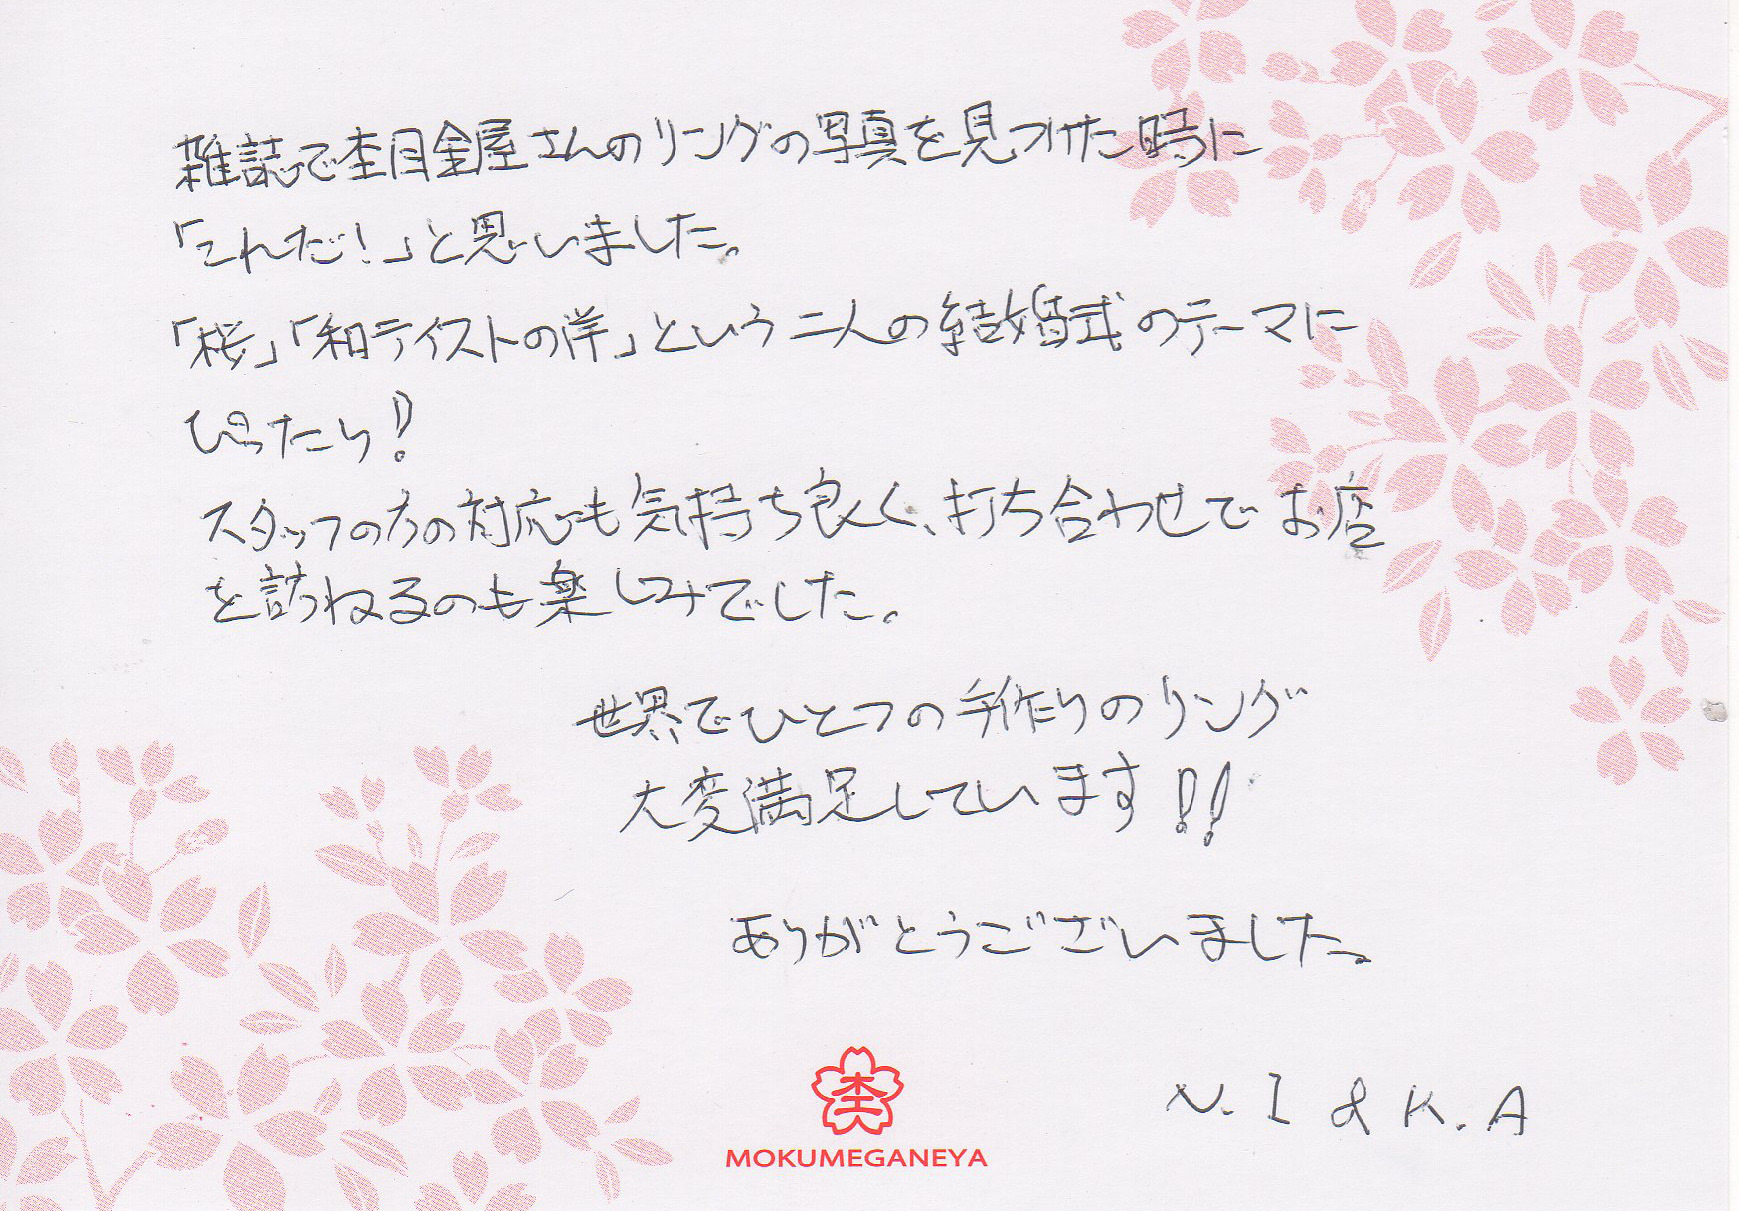 雑誌で杢目金屋さんのリングの写真を見つけた時に
「これだ！」と思いました。
「桜」「和テイストの洋」という二人の結婚式のテーマに
ぴったり！
スタッフの方の対応も気持ち良く、打ち合わせでお店
を訪ねるのも楽しみでした。
世界でひとつの手作りのリング
大変満足しています！！
ありがとうございました。
杢
MOKUMEGANEYA
N.I & K.A